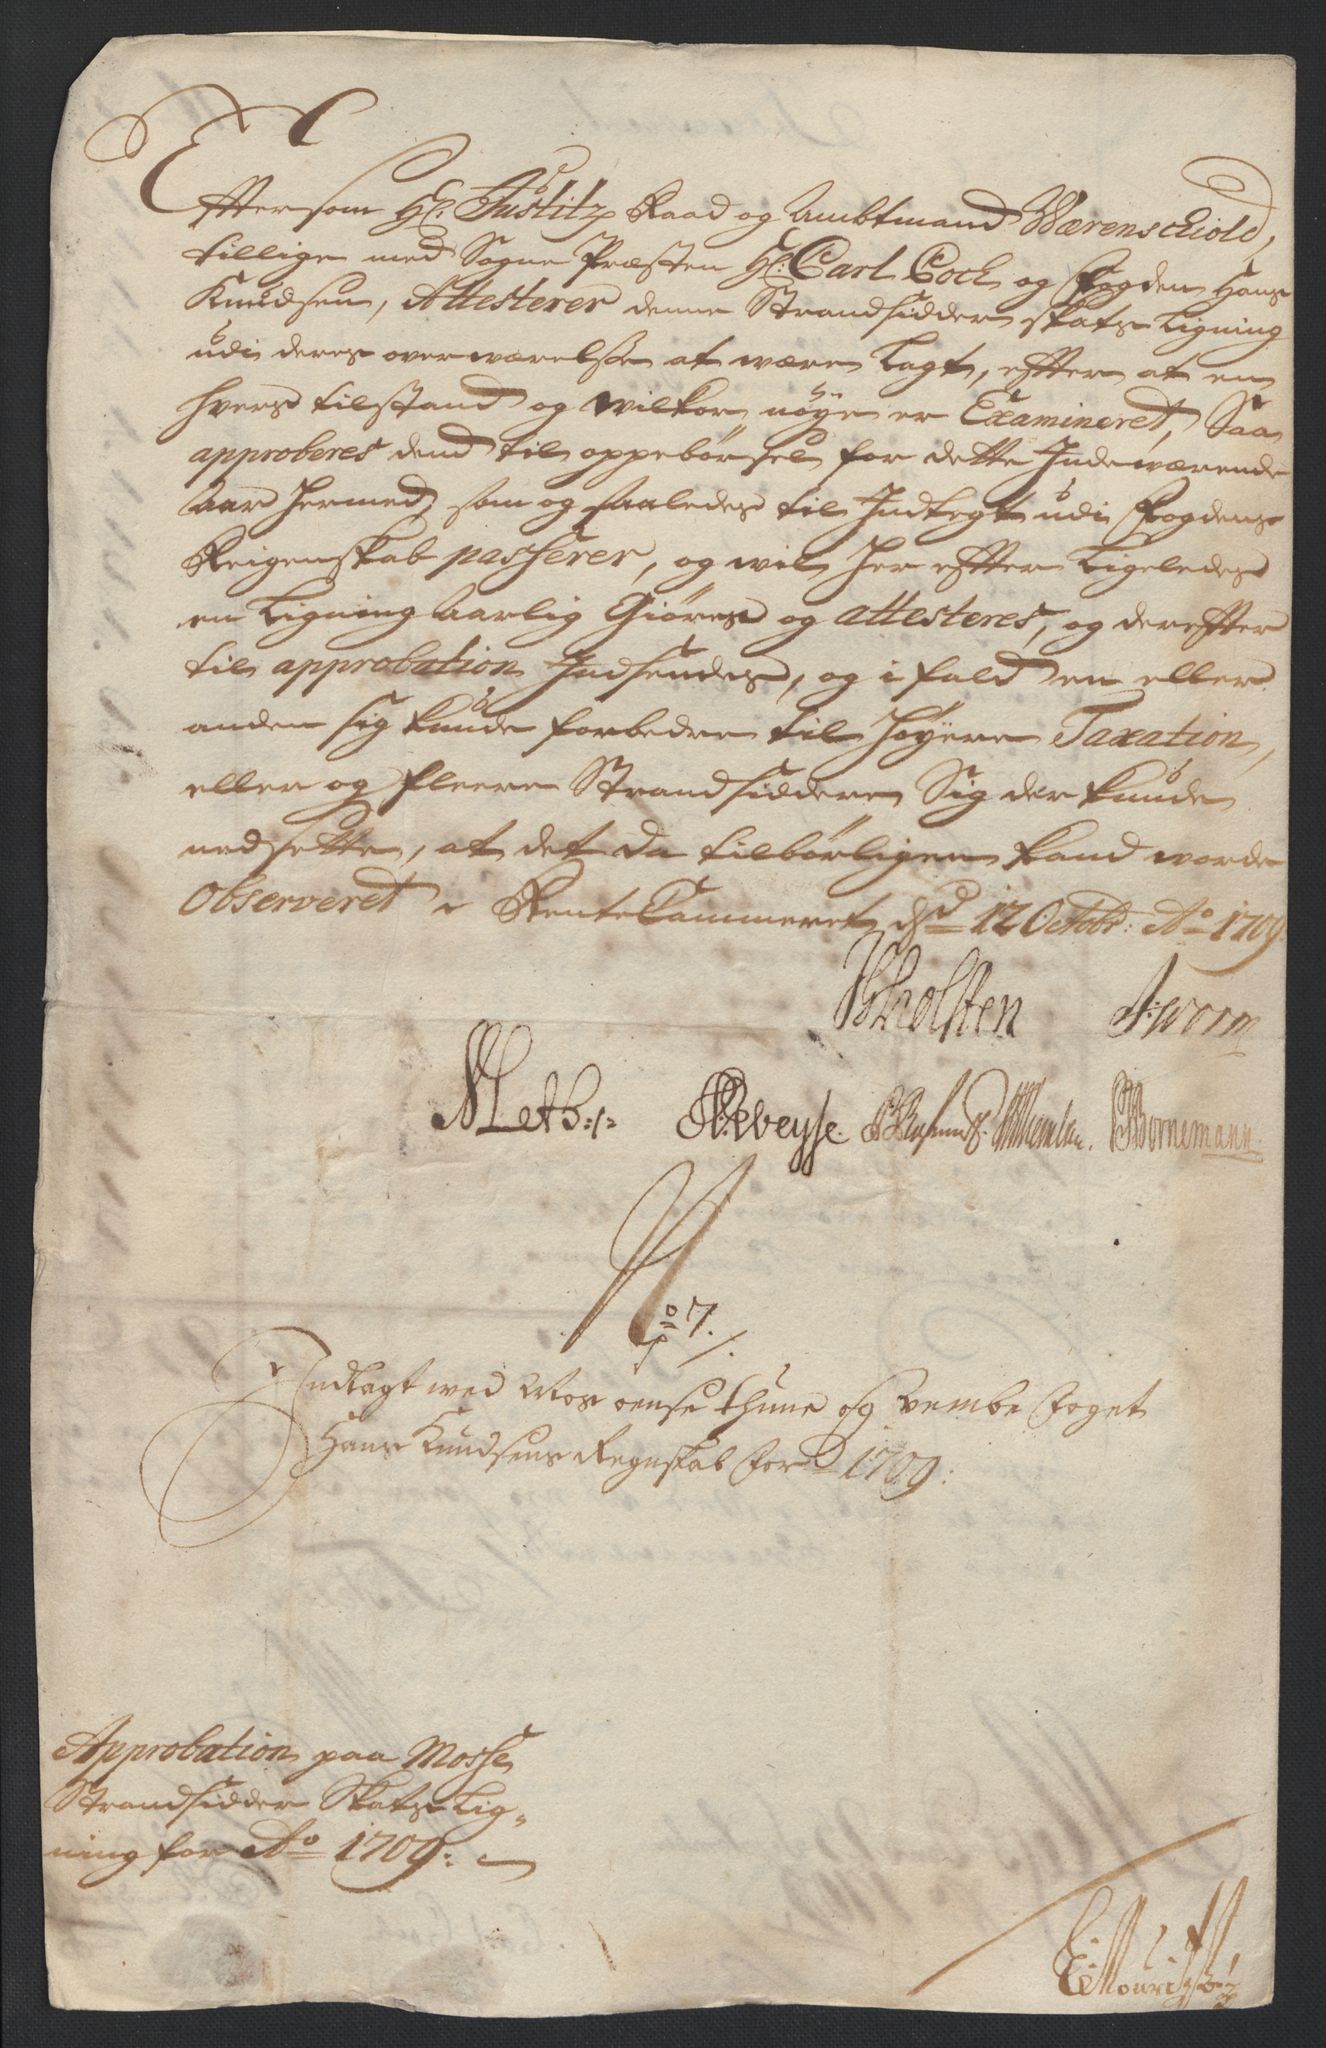 Eftersom Hr. Justitz Raad og Ambtmand Wærenschiold,
tillige med Sogne Præsten Hr: Carl Coch og Fogden Hans
Knudsen, Attesterer denne Strandsidder skats Ligning
udi deres overwærelse at være Lagt, efter at en
hvers tilstand og wilkor nøye er Examineret, Saa
approberes dend til oppebørsel for dette Indewærende
Aar hermed, som og saaledes til Indtegt udi Fogdens
Reigenskab passerer, og wil her efter Ligeledes
en Ligning Aarlig Giøres og attesteres, og derefter
til approbation Indsendes, og i fald en eller
anden sig kunde forbedre til høyere Taxation,
eller og fleere Strandsiddere Sig der kunde
nedsette, at det da tilbørligen kand worde
Observeret. RenteCammeret d. 12 Octobr: Ao 1709.
Holsten Worm
Meth: Weyse. Bornemann
No 7.
Indlagt wed Mos Oense Thune og Vembe Foget
Hans Knudsens Regnskab for 1709:
Approbation paa Mosse
Strandsidder Skatz Lig-
ning for Ao 1709: